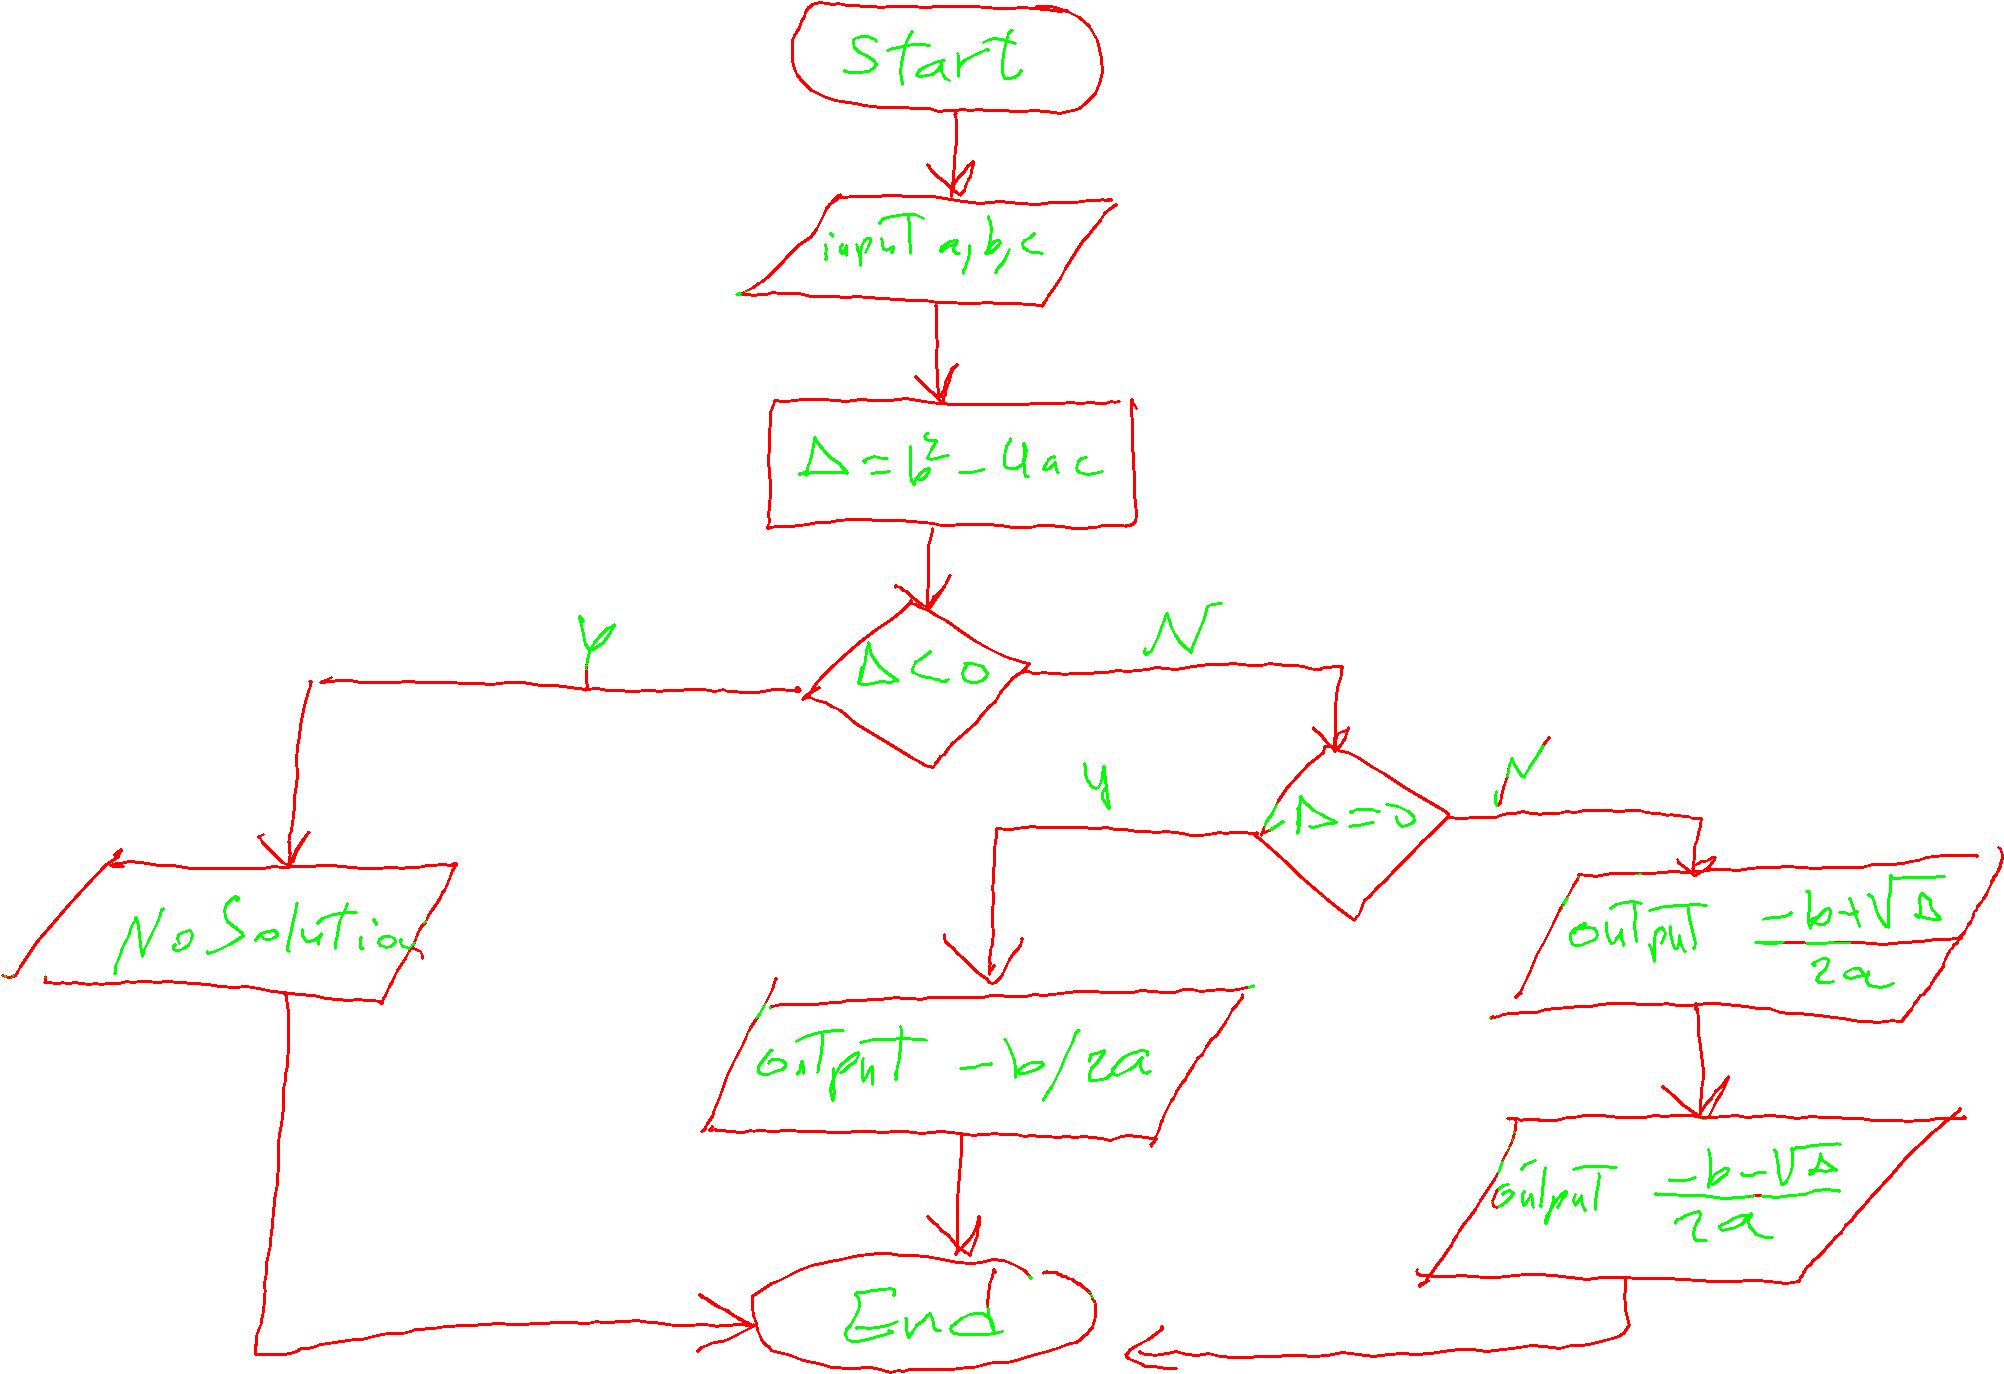 Start
input a, b, c
Δ = b² - 4ac
Y
Δ < 0
N
Y
Δ = 0
N
No Solution
output (-b+√Δ)/2a
output -b/2a
output (-b-√Δ)/2a
End